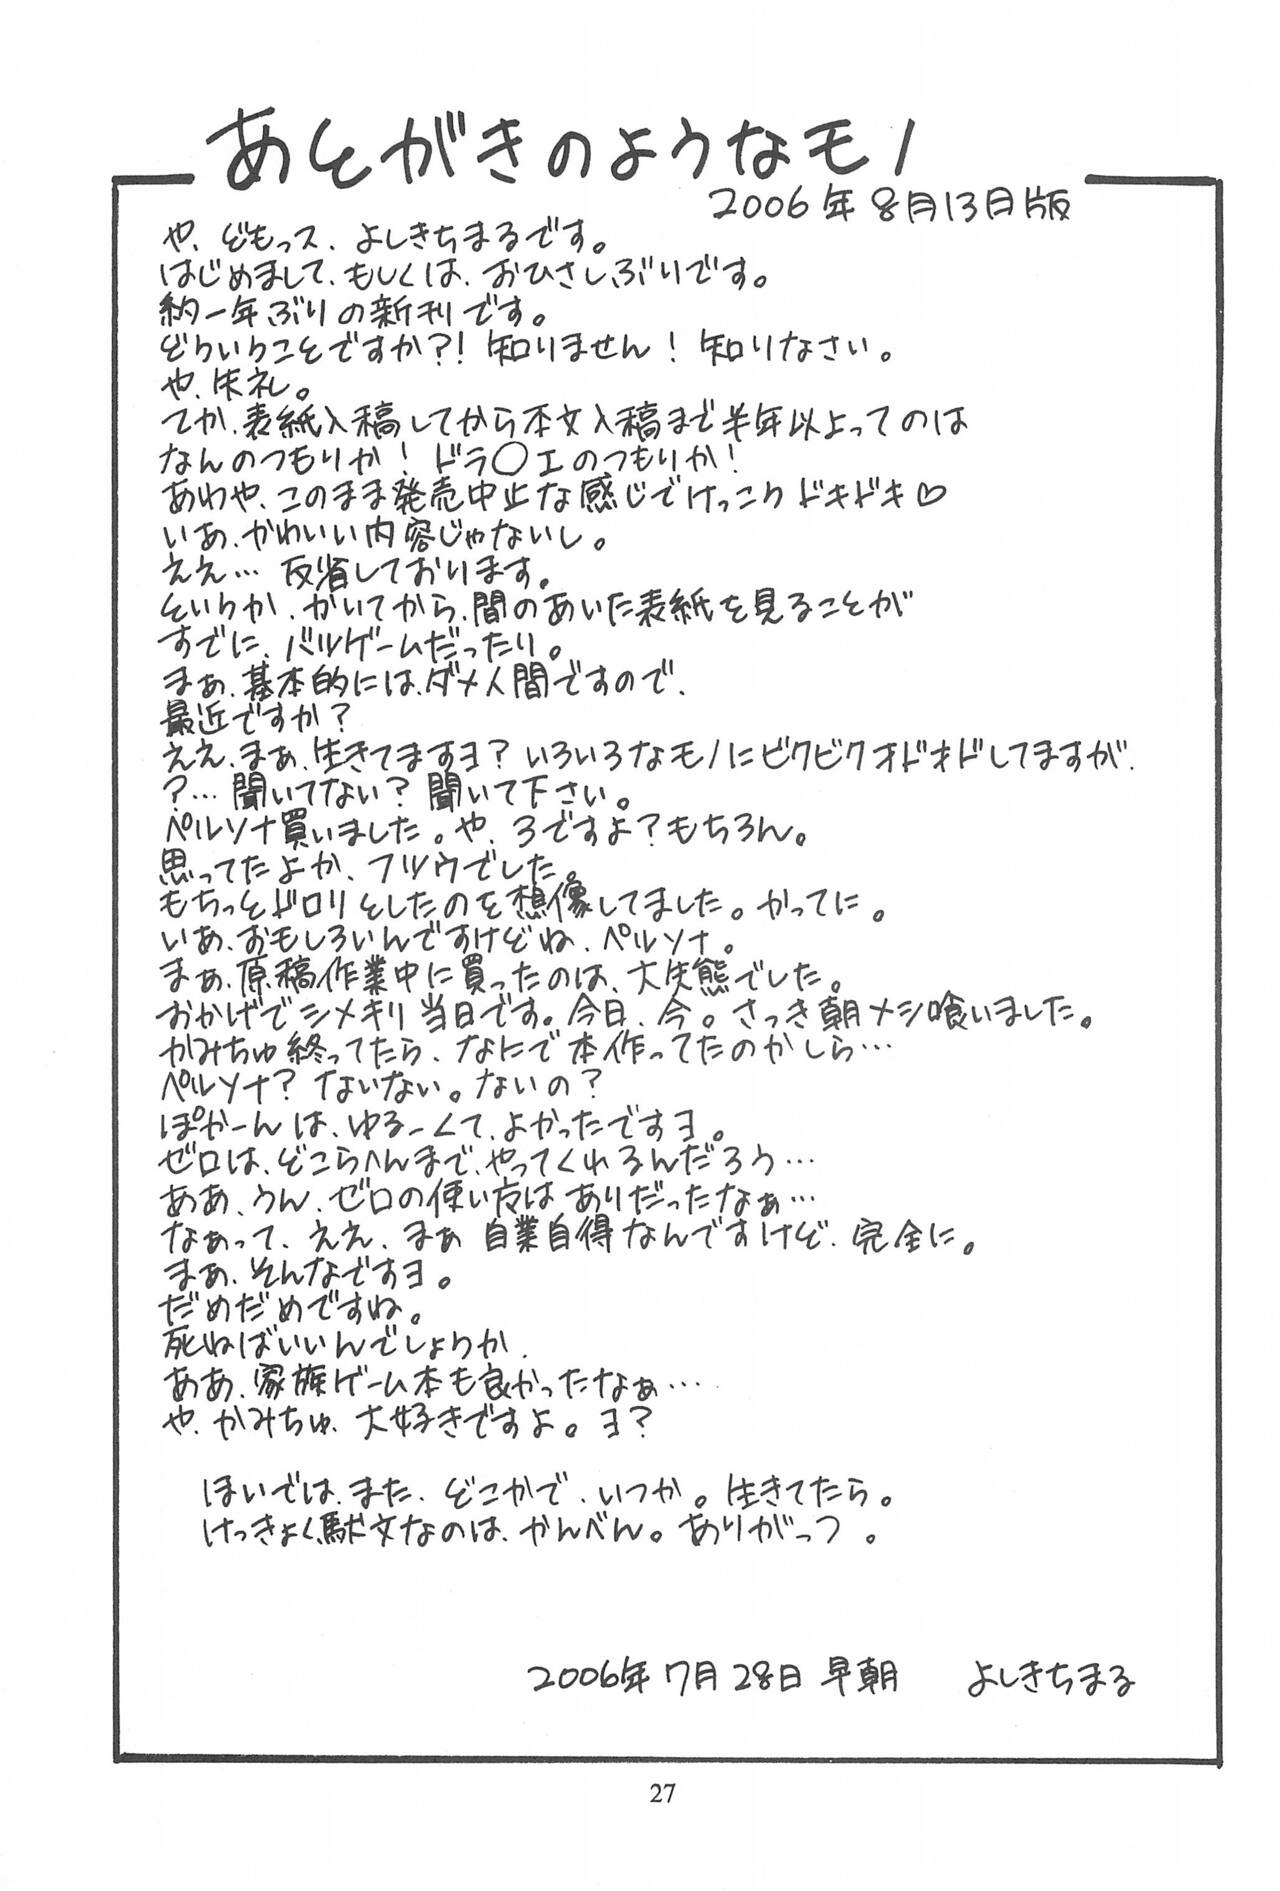 あとがきのようなモノ
2006年8月13日版
や、どもっス、よしきちまるです。
はじめまして、もしくは、おひさしぶりです。
約一年ぶりの新刊です。
どういうことですか?!知りません!知りなさい。
や、失礼。
てか、表紙入稿してから本文入稿まで半年以上ってのは
なんのつもりか!ドラ○エのつもりか!
あわや、このまま発売中止な感じでけっこうドキドキ♡
いあ、かわいい内容じゃないし。
ええ…反省しております。
というか、かいてから、間のあいた表紙を見ることが
すでに、バツゲームだったり。
まぁ、基本的には、ダメ人間ですので、
最近ですか?
ええ、まぁ、生きてますヨ?いろいろなモノにビクビクオドオドしてますが、
?…聞いてない?聞いて下さい。
ペルソナ買いました。や、3ですよ?もちろん。
思ってたよか、フツウでした。
もちっとドロリとしたのを想像してました。かってに。
いあ、おもしろいんですけどね、ペルソナ。
まぁ、原稿作業中に買ったのは、大失態でした。
おかげでシメキリ当日です。今日、今。さっき朝メシ喰いました。
かみちゅ終ってたら、なにで本作ってたのかしら…
ペルソナ?ないない。ないの?
ぽかーんは、ゆるーくて、よかったですヨ。
ゼロは、どこらへんまで、やってくれるんだろう…
ああ、うん、ゼロの使い方はありだったなぁ…
なぁって、ええ、まぁ自業自得なんですけど、完全に。
まぁ、そんなですヨ。
だめだめですね。
死ねばいいんでしょうか、
ああ、家族ゲーム本も良かったなぁ…
や、かみちゅ、大好きですよ。ヨ?
ほいでは、また、どこかで、いつか。生きてたら。
けっきょく、駄文なのは、かんべん。ありがっつ。
2006年7月28日早朝 よしきちまる
27